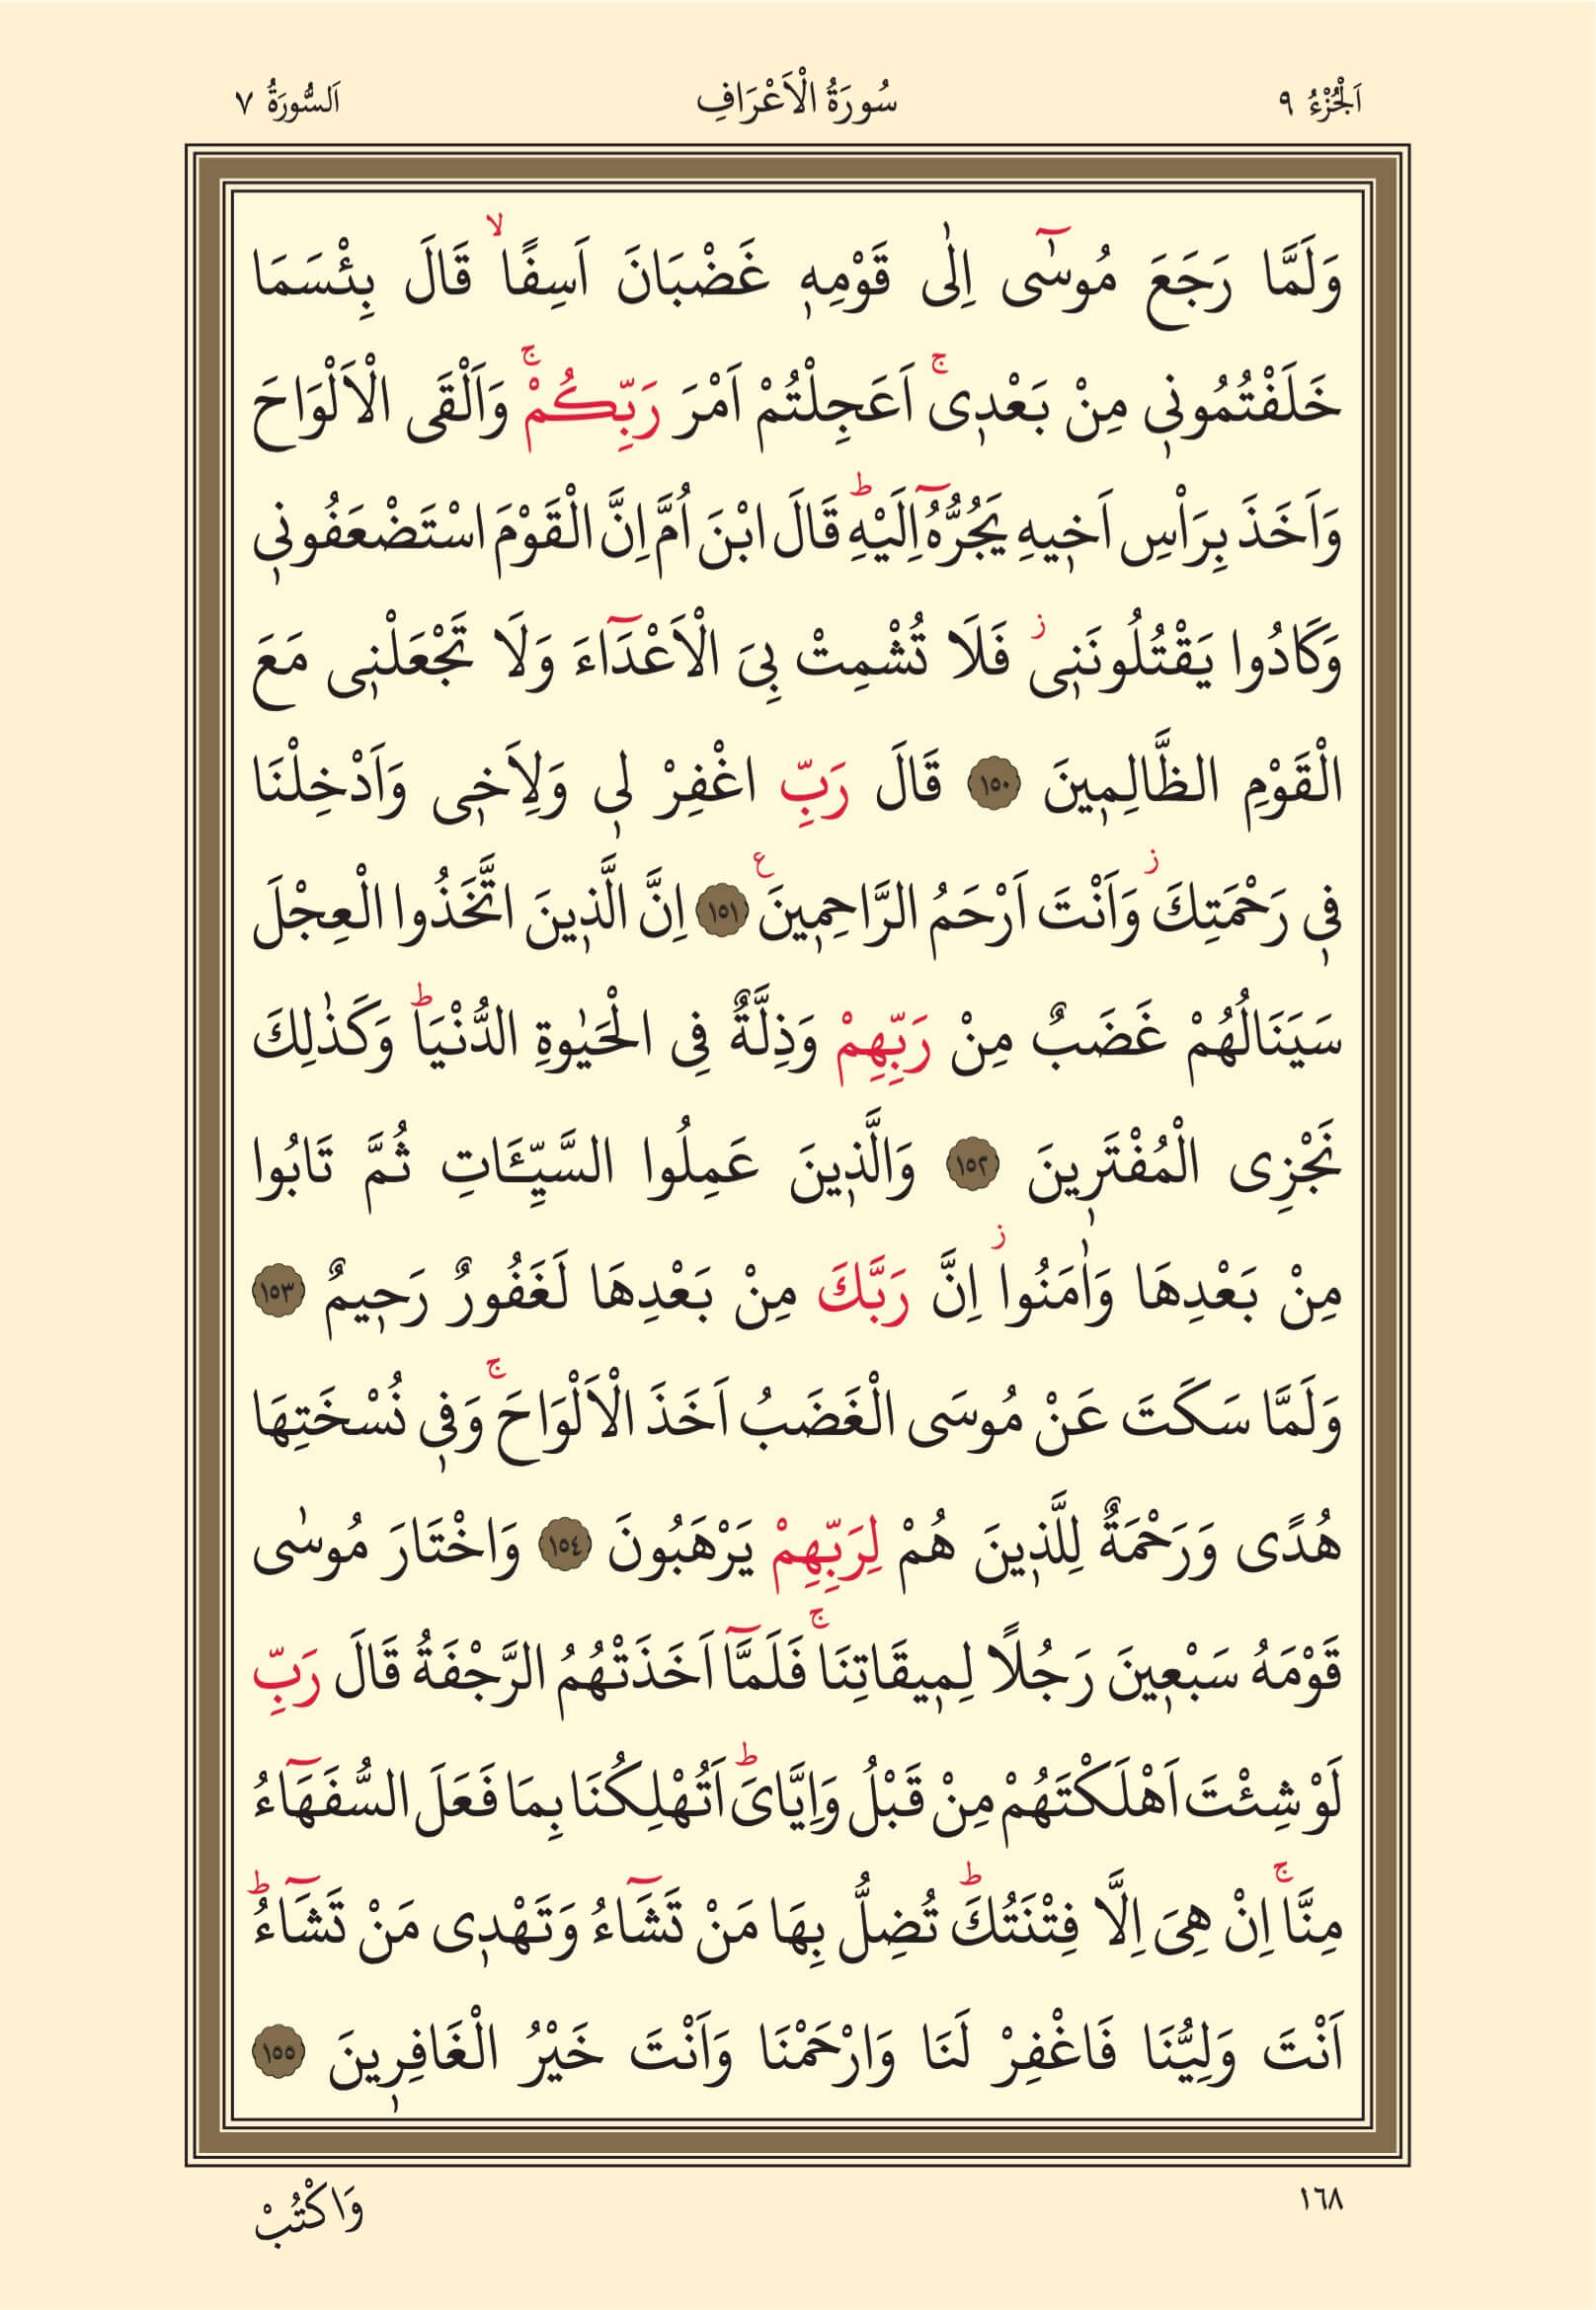 اَلْجُزْءُ ٩ سُورَةُ الْاَعْرَافِ اَلسُّورَةُ ٧
وَلَمَّا رَجَعَ مُوسٰٓى اِلٰى قَوْمِهٖ غَضْبَانَ اَسِفًاۙ قَالَ بِئْسَمَا
خَلَفْتُمُونٖي مِنْ بَعْدٖىۚ اَعَجِلْتُمْ اَمْرَ رَبِّكُمْۚ وَاَلْقَى الْاَلْوَاحَ
وَاَخَذَ بِرَاْسِ اَخٖيهِ يَجُرُّهُٓ اِلَيْهِؕ قَالَ ابْنَ اُمَّ اِنَّ الْقَوْمَ اسْتَضْعَفُونٖي
وَكَادُوا يَقْتُلُونَنٖىؗ فَلَا تُشْمِتْ بِىَ الْاَعْدَٓاءَ وَلَا تَجْعَلْنٖى مَعَ
الْقَوْمِ الظَّالِمٖينَ ﴿١٥٠﴾ قَالَ رَبِّ اغْفِرْ لٖي وَلِاَخٖى وَاَدْخِلْنَا
فٖي رَحْمَتِكَؗ وَاَنْتَ اَرْحَمُ الرَّاحِمٖينَࣖ ﴿١٥١﴾ اِنَّ الَّذٖينَ اتَّخَذُوا الْعِجْلَ
سَيَنَالُهُمْ غَضَبٌ مِنْ رَبِّهِمْ وَذِلَّةٌ فِى الْحَيٰوةِ الدُّنْيَاؕ وَكَذٰلِكَ
نَجْزِى الْمُفْتَرٖينَ ﴿١٥٢﴾ وَالَّذٖينَ عَمِلُوا السَّيِّـَٔاتِ ثُمَّ تَابُوا
مِنْ بَعْدِهَا وَاٰمَنُواؗ اِنَّ رَبَّكَ مِنْ بَعْدِهَا لَغَفُورٌ رَحٖيمٌ ﴿١٥٣﴾
وَلَمَّا سَكَتَ عَنْ مُوسَى الْغَضَبُ اَخَذَ الْاَلْوَاحَۚ وَفٖي نُسْخَتِهَا
هُدًى وَرَحْمَةٌ لِلَّذٖينَ هُمْ لِرَبِّهِمْ يَرْهَبُونَ ﴿١٥٤﴾ وَاخْتَارَ مُوسٰى
قَوْمَهُ سَبْعٖينَ رَجُلًا لِمٖيقَاتِنَاۚ فَلَمَّٓا اَخَذَتْهُمُ الرَّجْفَةُ قَالَ رَبِّ
لَوْ شِئْتَ اَهْلَكْتَهُمْ مِنْ قَبْلُ وَاِيَّاىَؕ اَتُهْلِكُنَا بِمَا فَعَلَ السُّفَهَٓاءُ
مِنَّاۚ اِنْ هِىَ اِلَّا فِتْنَتُكَؕ تُضِلُّ بِهَا مَنْ تَشَٓاءُ وَتَهْدٖى مَنْ تَشَٓاءُؕ
اَنْتَ وَلِيُّنَا فَاغْفِرْ لَنَا وَارْحَمْنَا وَاَنْتَ خَيْرُ الْغَافِرٖينَ ﴿١٥٥﴾
١٦٨ وَاكْتُبْ